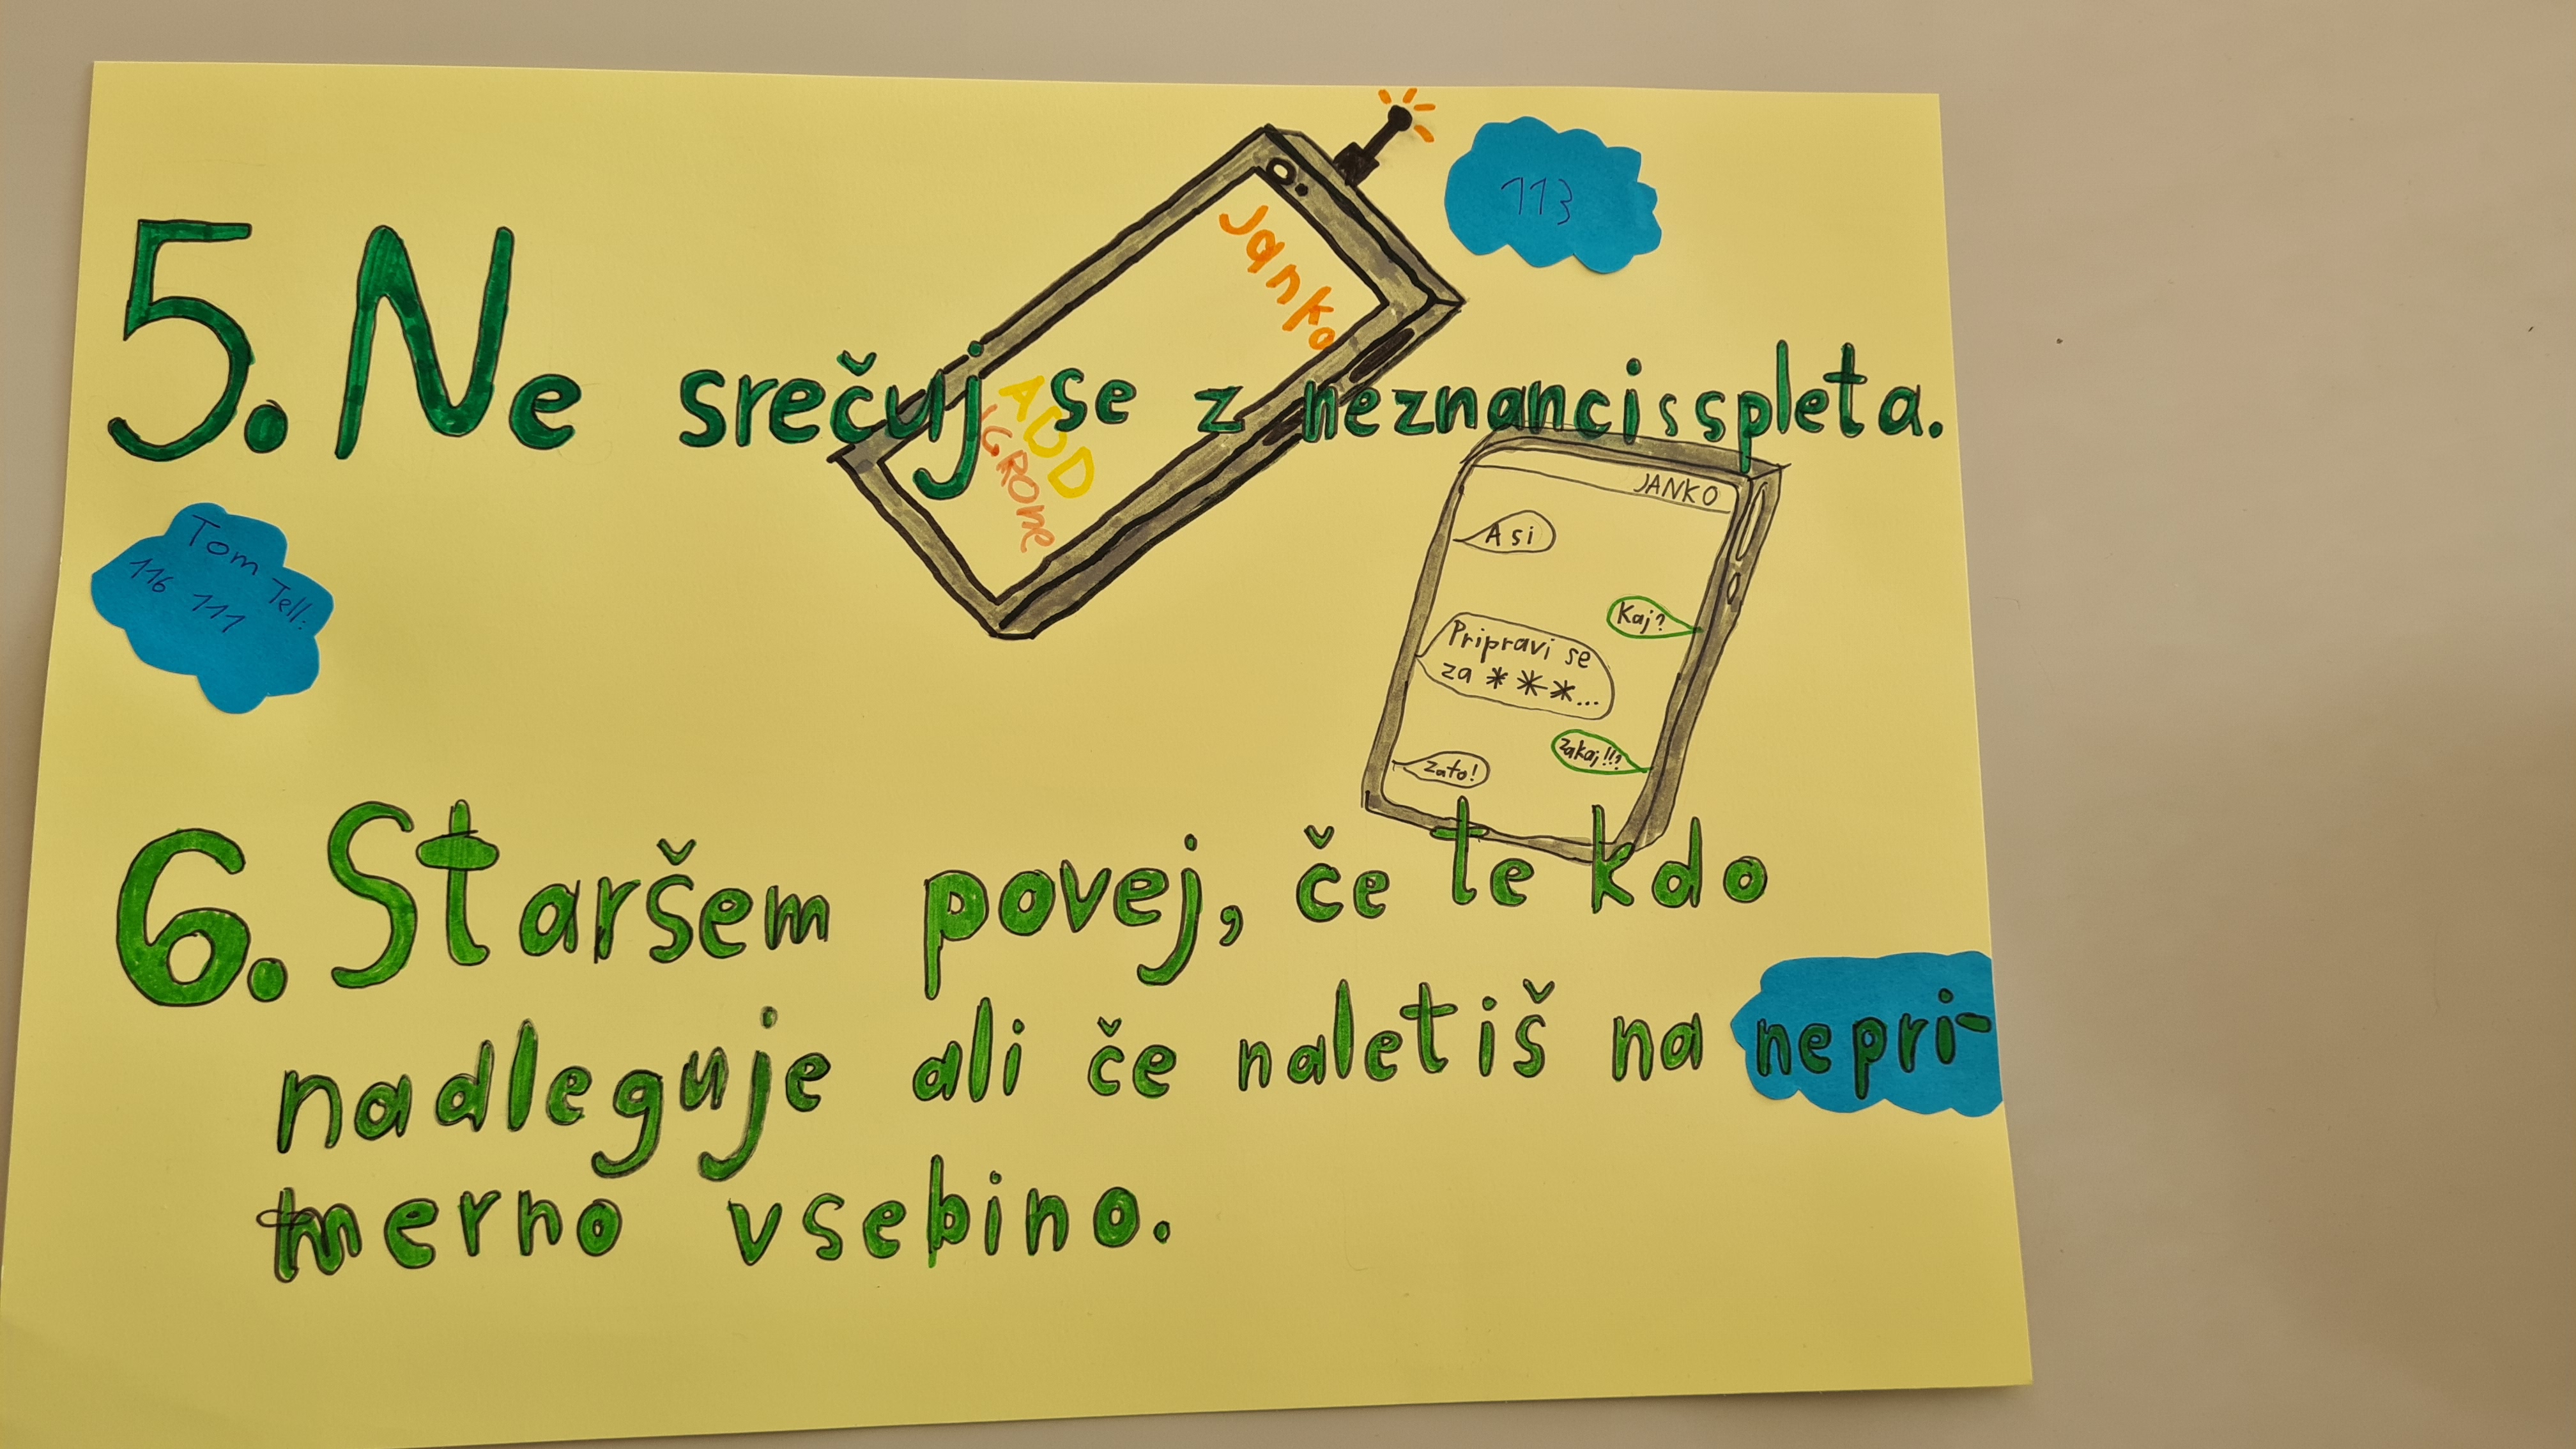 113
Janko
5. Ne srečuj se z neznanci s spleta.
ADD
IGRONE
JANKO
A si
Kaj?
Pripravi se
za ***...
Zakaj!!?
Zato!
Tom Tell:
116 111
6. Staršem povej, če te kdo
nadleguje ali če naletiš na nepri-
merno vsebino.